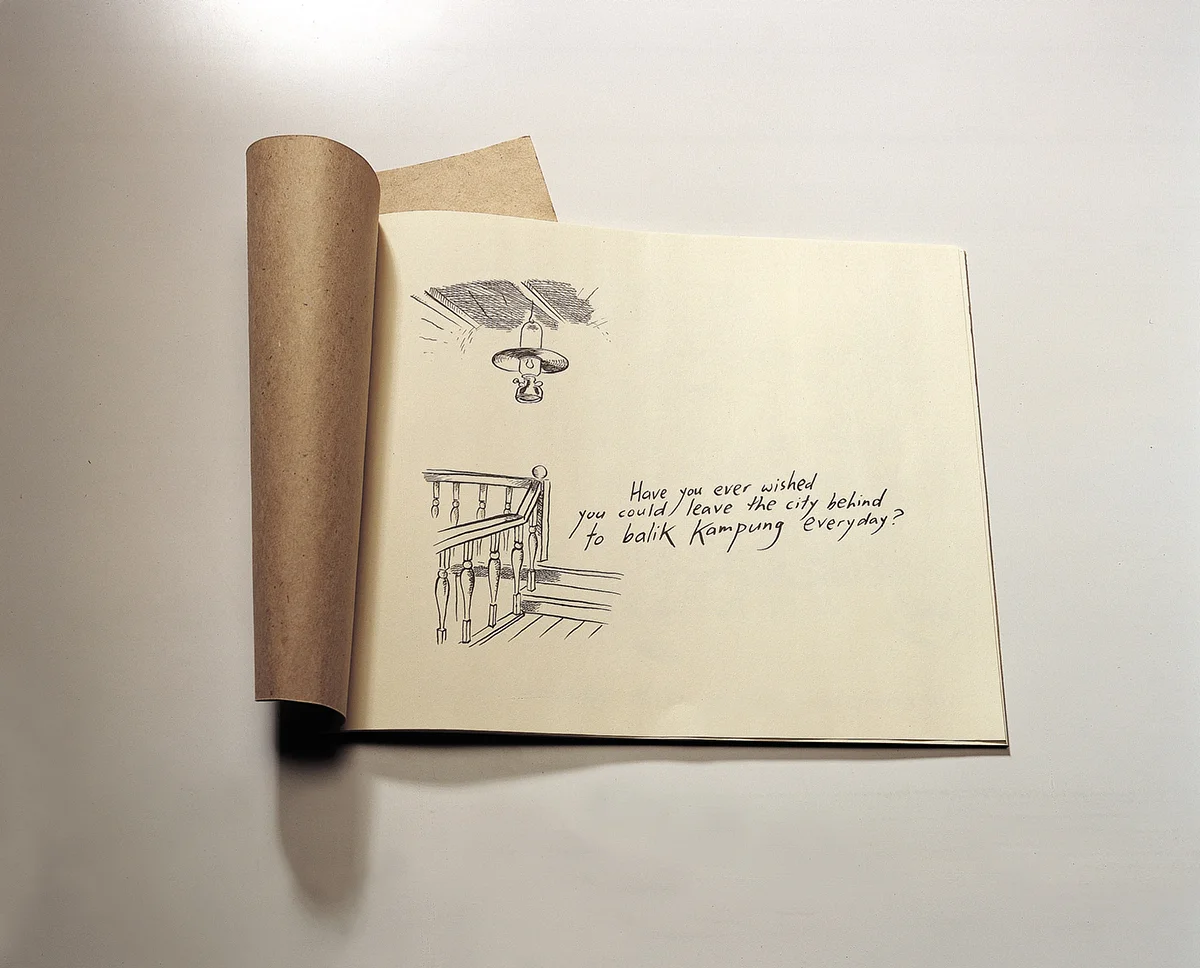 Have you ever wished
you could leave the city behind
to balik kampung everyday?